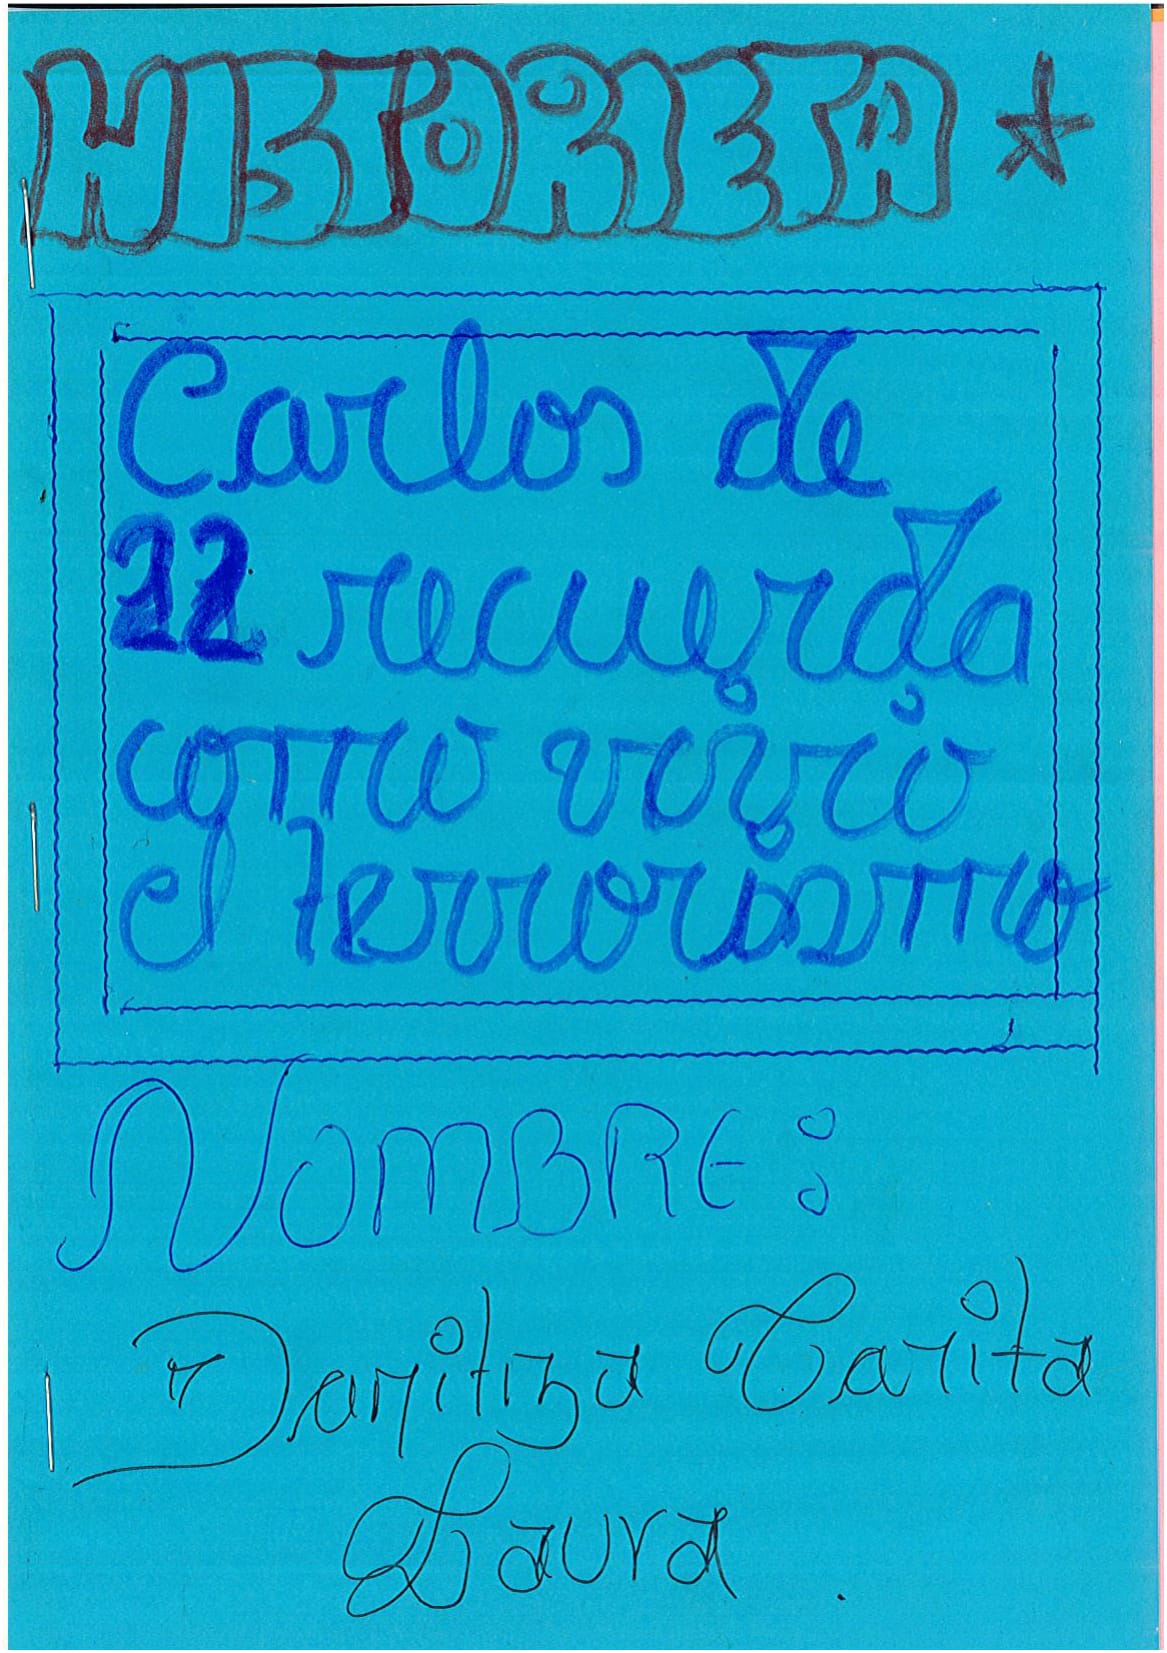 HISTORIETA
Carlos de
22 recuerda
como vivio
el terrorismo
NOMBRE:
Danitza Carita
Laura.